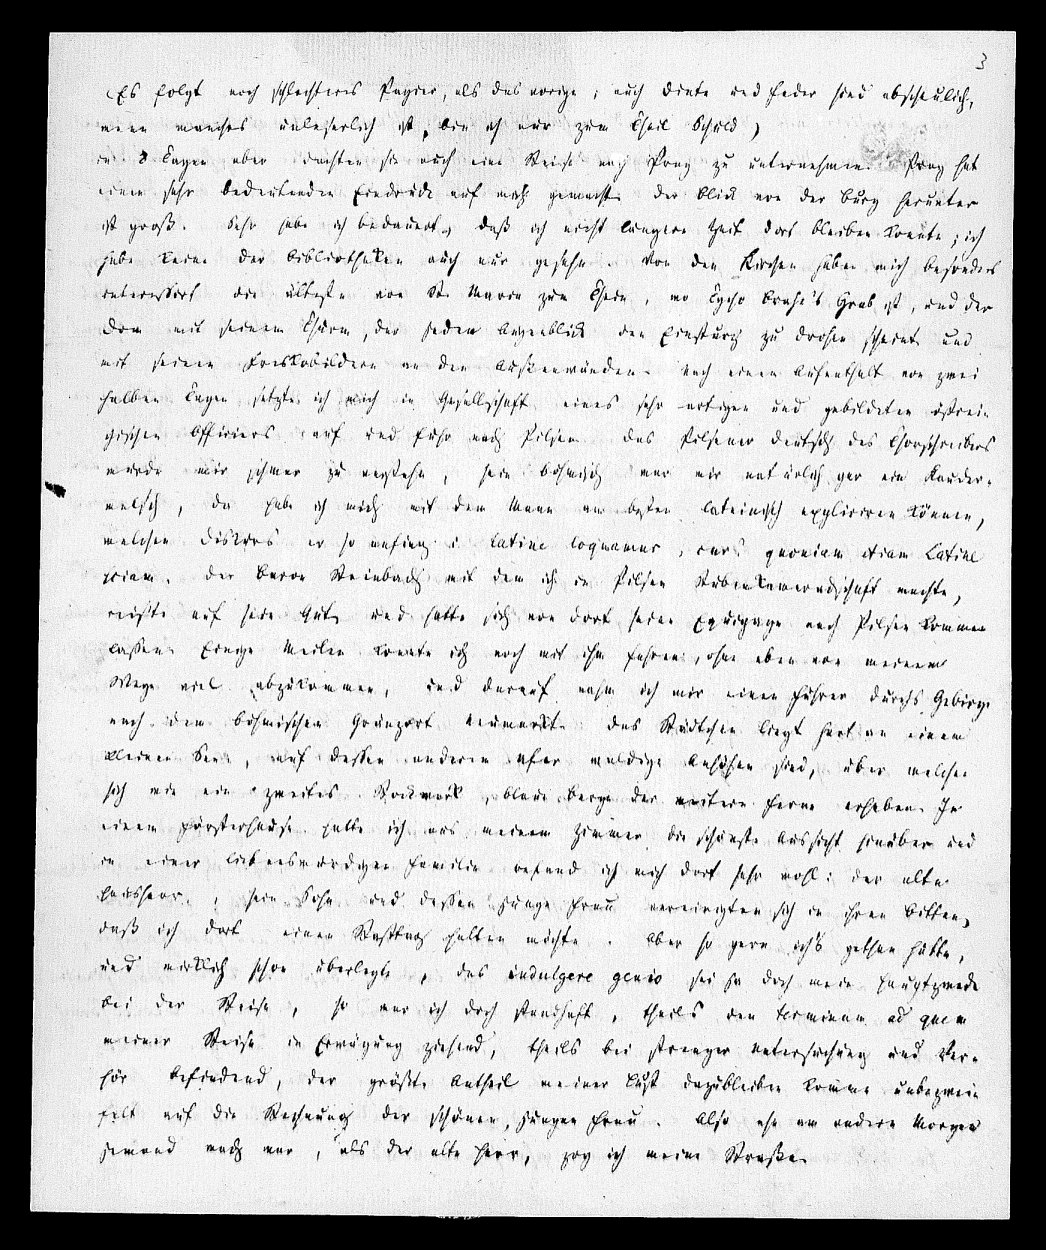 3
Es folgt noch schlechteres Papier, als das vorige; auch Dinte und Feder sind abscheulich,
wenn manches unleserlich ist, bin ich nur zum Theil Schuld,
in 8 Tagen aber dachten sie auch eine Reise nach Prag zu unternehmen. Prag hat
einen sehr bedeutenden Eindruck auf mich gemacht. Der Blick von der Burg herunter
ist groß. Sehr habe ich bedauert, daß ich nicht längere Zeit dort bleiben konnte; ich
habe keine der Bibliotheken auch nur gesehn. Von den Kirchen haben mich besonders
interessirt die älteste von St. Maria zum Thein, wo Tycho Brahe's Grab ist, und der
Dom mit seinem Thurm, der jeden Augenblick den Einsturz zu drohen scheint und
mit seinen Freskobildern an den Außenwänden. Nach einem Aufenthalt von zwei
halben Tagen setzte ich mich in Gesellschaft eines sehr artigen und gebildeten östrei-
chischen Officiers auf und fuhr nach Pilsen. Das Pilsener Deutsch des Thorschreibers
wurde mir schwer zu verstehn, sein böhmisch war mir natürlich gar ein Kauder-
welsch, da habe ich mich mit dem Mann am besten lateinisch expliciren können,
welchen Diskurs er so anfieng: Latine loquamur, quoniam etiam Latine
sciam. Der Baron Steinbach mit dem ich in Pilsen Stubenkameradschaft machte,
reiste auf sein Gut und hatte sich von dort seine Equipage nach Pilsen kommen
lassen. Einige Meilen konnte ich noch mit ihm fahren, ohne eben von meinem
Wege viel abzukommen, und darauf nahm ich mir einen Führer durchs Gebirge
nach dem böhmischen Gränzort Neumarkt. Das Städtchen liegt hart an einem
kleinen See, auf dessen anderem Ufer waldige Anhöhen sind, über welche
sich wie ein zweites Stockwerk blaue Berge der weitern Ferne erheben. In
einem Försterhause hatte ich aus meinem Zimmer die schönste Aussicht hinüber und
in einer liebenswürdigen Familie befand ich mich dort sehr wohl: der alte
Hausherr, sein Sohn und dessen junge Frau vereinigten sich in ihren Bitten,
daß ich dort einen Rasttag halten möchte. Aber so gern ich's gethan hätte,
und wirklich schon überlegte, das indulgere genio sei ja doch mein Hauptzweck
bei der Reise, so war ich doch standhaft, theils den terminum ad quem
meiner Reise in Erwägung ziehend, theils bei strenger Untersuchung und Ver-
hör befindend, der größte Antheil meiner Lust dazubleiben komme unbezwei-
felt auf die Rechnung der schönen, jungen Frau. Also ehe am andern Morgen
jemand wach war, als der alte Herr, zog ich meine Straße.